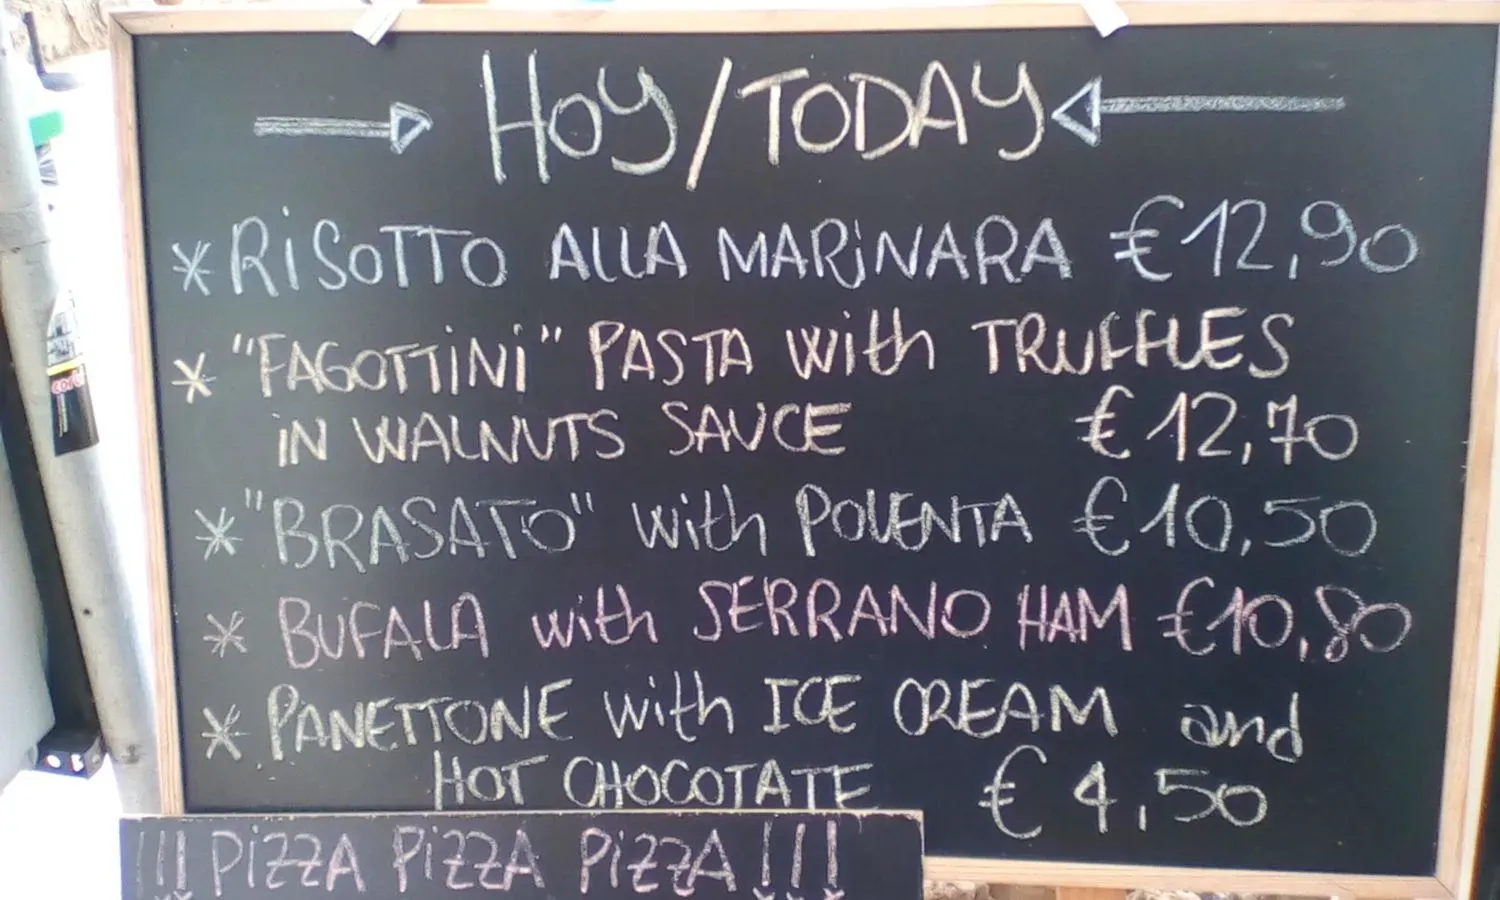 HOY/TODAY
* RISOTTO ALLA MARINARA €12,90
* "FAGOTTINI" PASTA with TRUFFLES
IN WALNUTS SAUCE €12,70
* "BRASATO" with POLENTA €10,50
* BUFALA with SERRANO HAM €10,80
* PANETTONE with ICE CREAM and
HOT CHOCOTATE €4,50
!!! PIZZA PIZZA PIZZA !!!